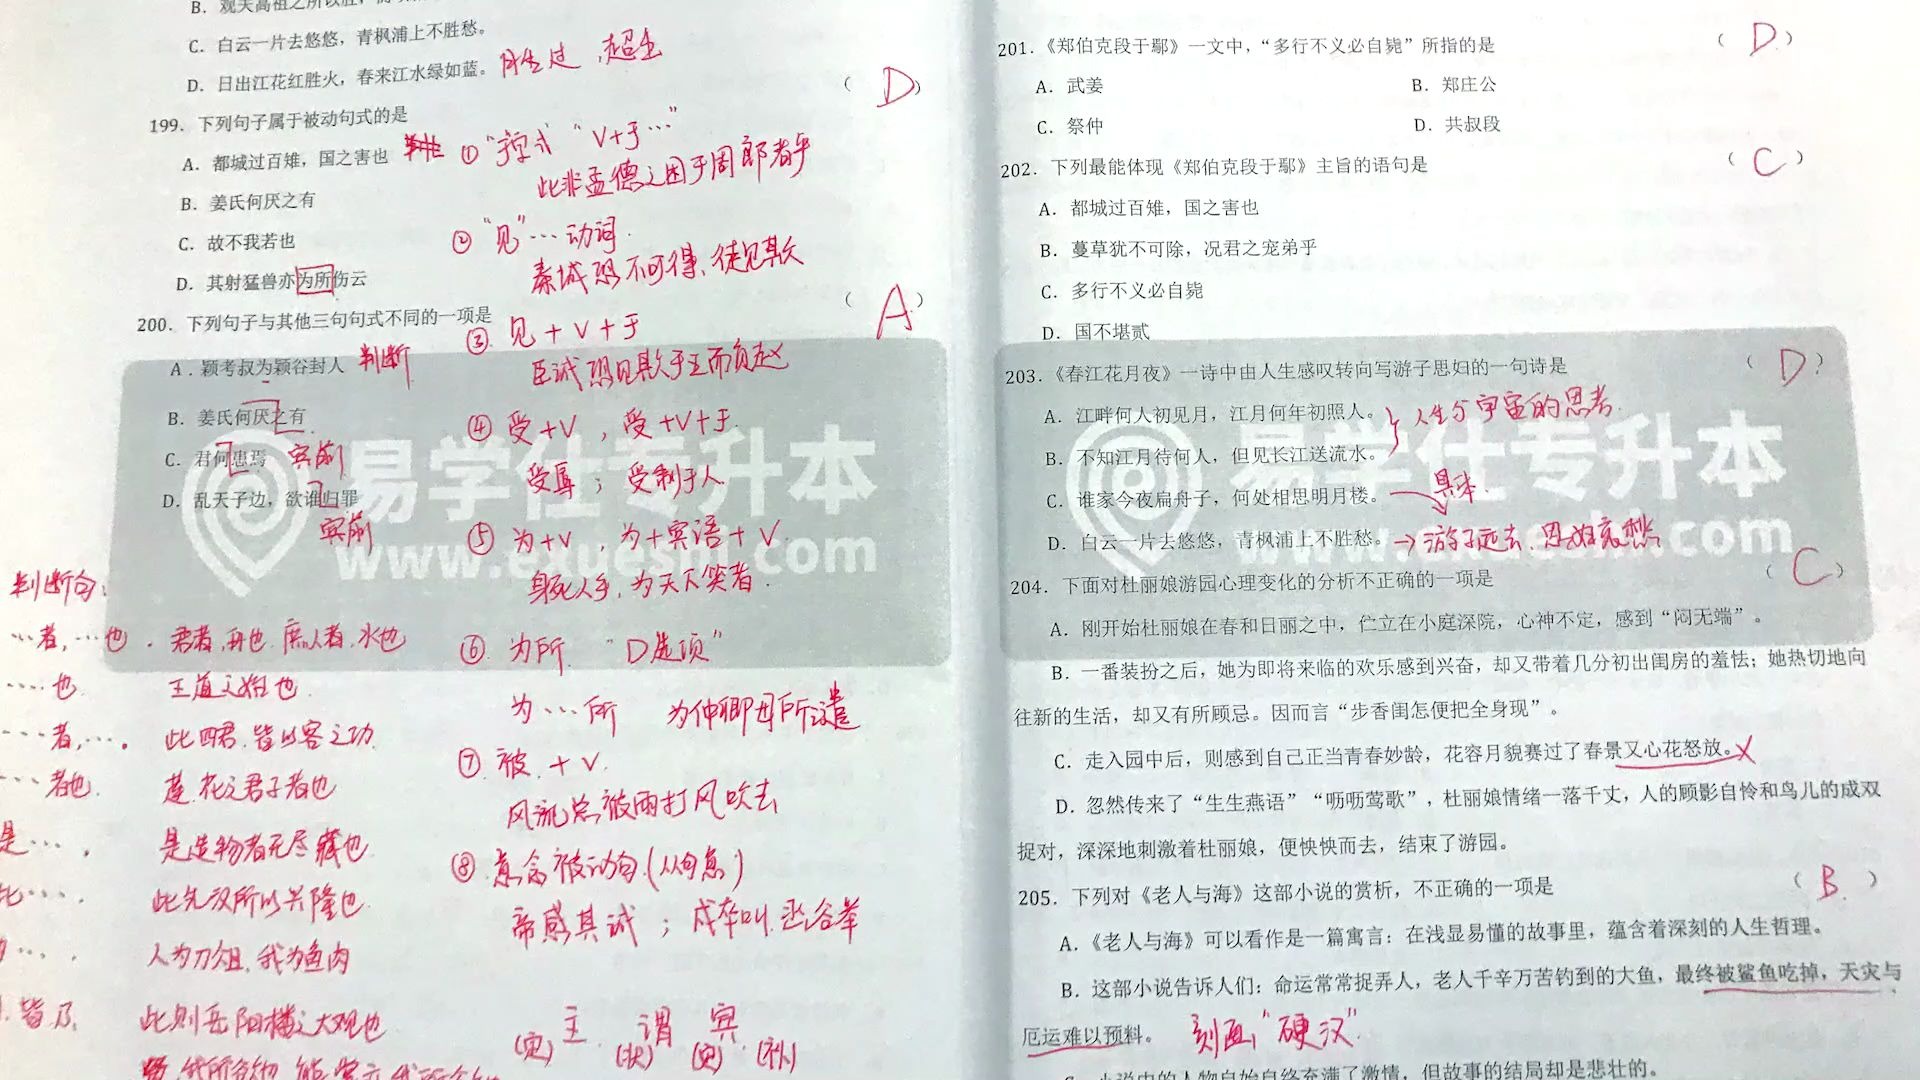 C. 白云一片去悠悠，青枫浦上不胜愁。
D. 日出江花红胜火，春来江水绿如蓝。 胜过，超过
199. 下列句子属于被动句式的是 （ D ）
A. 都城过百雉，国之害也
B. 姜氏何厌之有
C. 故不我若也
D. 其射猛兽亦为所伤云
200. 下列句子与其他三句句式不同的一项是 （ A ）
A. 颖考叔为颖谷封人 判断
B. 姜氏何厌之有
C. 君何患焉 宾前
D. 乱天子边，欲谁归罪
宾前
① "V+于…"
此非孟德之困于周郎者乎
② "见"…动词
秦城恐不可得，徒见欺
③ 见+V+于
臣诚恐见欺于王而负赵
④ 受+V，受+V+于
受辱；受制于人
⑤ 为+V，为+宾语+V
身死人手，为天下笑者
⑥ 为所 "D选项"
为…所 为仲卿母所遣
⑦ 被+V
风流总被雨打风吹去
⑧ 意念被动句（从句意）
帝感其诚；戍卒叫，函谷举
判断句：
…者，…也。 君者，舟也，庶人者，水也
…也 王道之始也
…者，…。 此四君，皆以客之功
…者也 莲，花之君子者也
是…， 是造物者无尽藏也
此…. 此先汉所以兴隆也
人为刀俎，我为鱼肉
皆 乃 此则岳阳楼之大观也
主 谓 宾
(定) (状) (定) (补)
201.《郑伯克段于鄢》一文中，“多行不义必自毙”所指的是 （ D ）
A. 武姜 B. 郑庄公
C. 祭仲 D. 共叔段
202. 下列最能体现《郑伯克段于鄢》主旨的语句是 （ C ）
A. 都城过百雉，国之害也
B. 蔓草犹不可除，况君之宠弟乎
C. 多行不义必自毙
D. 国不堪贰
203.《春江花月夜》一诗中由人生感叹转向写游子思妇的一句诗是 （ D ）
A. 江畔何人初见月，江月何年初照人。 人生与宇宙的思考
B. 不知江月待何人，但见长江送流水。
C. 谁家今夜扁舟子，何处相思明月楼。 具体
D. 白云一片去悠悠，青枫浦上不胜愁。 →游子远去，思妇哀愁
204. 下面对杜丽娘游园心理变化的分析不正确的一项是 （ C ）
A. 刚开始杜丽娘在春和日丽之中，伫立在小庭深院，心神不定，感到“闷无端”。
B. 一番装扮之后，她为即将来临的欢乐感到兴奋，却又带着几分初出闺房的羞怯；她热切地向
往新的生活，却又有所顾忌。因而言“步香闺怎便把全身现”。
C. 走入园中后，则感到自己正当青春妙龄，花容月貌赛过了春景又心花怒放。
D. 忽然传来了“生生燕语”“呖呖莺歌”，杜丽娘情绪一落千丈，人的顾影自怜和鸟儿的成双
捉对，深深地刺激着杜丽娘，便怏怏而去，结束了游园。
205. 下列对《老人与海》这部小说的赏析，不正确的一项是 （ B ）
A.《老人与海》可以看作是一篇寓言：在浅显易懂的故事里，蕴含着深刻的人生哲理。
B. 这部小说告诉人们：命运常常捉弄人，老人千辛万苦钓到的大鱼，最终被鲨鱼吃掉，天灾与
厄运难以预料。 刻画"硬汉"
小说中的人物自始自终充满了激情，但故事的结局却是悲壮的。
易学仕专升本
www.exueshi.com
易学仕专升本
www.exueshi.com